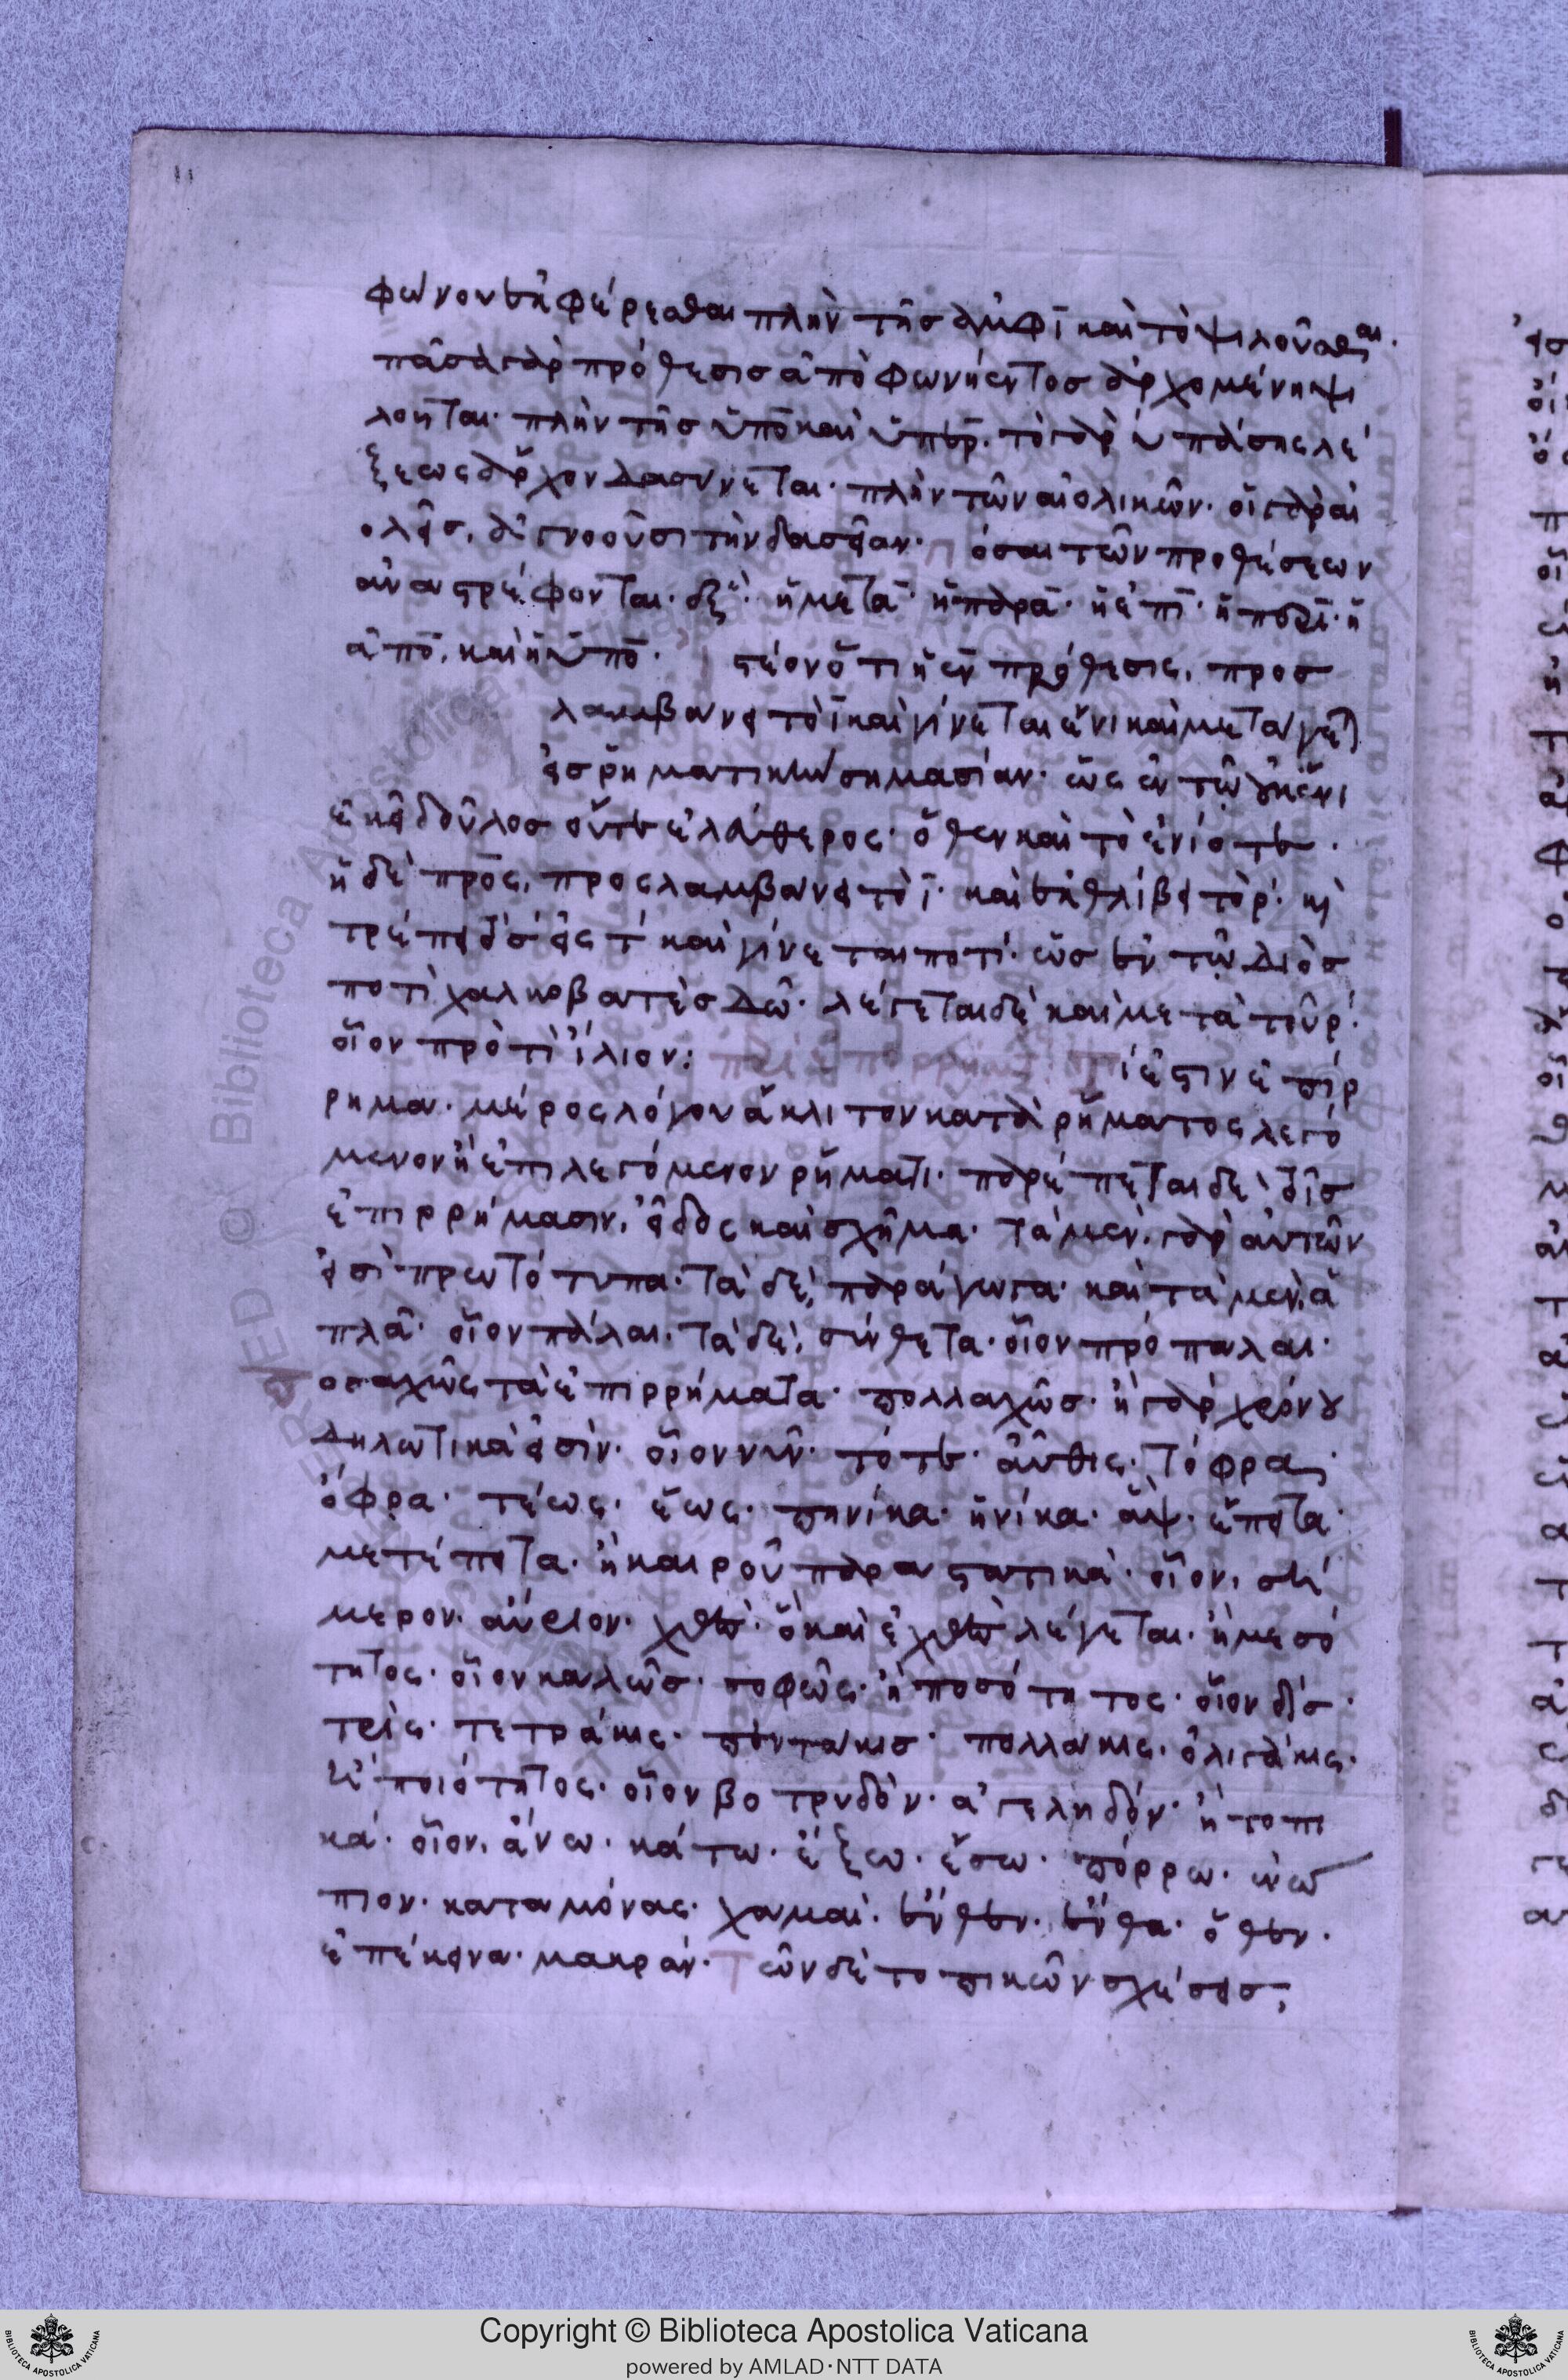 φώνον ἐκφέρεσθαι πλὴν τῆς ἀμφὶ καὶ τὸ ψιλοῦσθαι.
πᾶσα γὰρ πρόθεσις ἀπὸ φωνήεντος ἀρχομένη ψι
λοῦται· πλὴν τῆς ὑπὸ καὶ ὑπὲρ. τὸ γὰρ υ πάσης λέ
ξεως ἄρχον δασύνεται· πλὴν τῶν αἰολικῶν. οἱ γὰρ αἰ
ολεῖς, ἀγνοοῦσι τὴν δασεῖαν· πόσαι τῶν προθέσεων
ἀναστρέφονται· ἕξ· ἡ μετά· ἡ παρά· ἡ ἐπί· ἡ περί· ἡ
ἀπό, καὶ ἡ ὑπό· ἰστέον ὅτι ἡ ἐν πρόθεσις, προσ
λαμβάνει τὸ ι καὶ γίνεται ἔνι καὶ μετάγει
εἰς ῥηματικὴν σημασίαν· ὡς ἐν τῷ οὐκ ἔνι
ἐκεῖ δοῦλος οὔτε ἐλεύθερος· ὅθεν καὶ τὸ ἐνίοτε.
ἡ δὲ πρὸς, προσλαμβάνει τὸ ι· καὶ ἐκθλίβει τὸ ρ· καὶ
τρέπει τὸ σ εἰς τ καὶ γίνεται ποτί· ὡς ἐν τῷ Διὸς
ποτὶ χαλκοβατὲς δῶ· λέγεται δὲ καὶ μετὰ τοῦ ρ·
οἷον προτὶ ἴλιον: περὶ ἐπιρρήματ Τί ἐστιν ἐπίρ
ρημα· μέρος λόγου ἄκλιτον κατὰ ῥήματος λεγό
μενον ἢ ἐπιλεγόμενον ῥήματι· παρέπεται δὲ τοῖς
ἐπιρρήμασιν, εἶδος καὶ σχῆμα· τὰ μὲν γὰρ αὐτῶν
εἰσὶ πρωτότυπα· τὰ δὲ, παράγωγα· καὶ τὰ μὲν, ἁ
πλᾶ· οἷον πάλαι. τὰ δὲ, σύνθετα· οἷον πρόπαλαι·
ποσαχῶς τὰ ἐπιρρήματα· πολλαχῶς· ἢ γὰρ χρόνου
δηλωτικά εἰσιν· οἷον νῦν· τότε· αὖθις· τόφρα·
ὄφρα· τέως· ἕως· πηνίκα· ἡνίκα· ἄψ· ἔπειτα·
μετέπειτα· ἢ καιροῦ παραστατικά· οἷον, σή
μερον· αὔριον· χθὲς· ὃ καὶ ἐχθὲς λέγεται· ἢ μεσό
τητος· οἷον καλῶς· σοφῶς· ἢ ποσότητος· οἷον δίς·
τρίς· τετράκις· πεντάκις· πολλάκις· ὀλιγάκις·
ἢ ποιότητος· οἷον βοτρυδόν· ἀγεληδόν· ἢ τοπι
κά· οἷον, ἄνω· κάτω· ἔξω· ἔσω· πόρρω· ἐνώ
πιον· καταμόνας· χαμαί· ἔνθεν· ἔνθα· ὅθεν·
ἐπέκεινα· μακράν· Τῶν δὲ τοπικῶν σχέσεις;
Copyright © Biblioteca Apostolica Vaticana
powered by AMLAD·NTT DATA